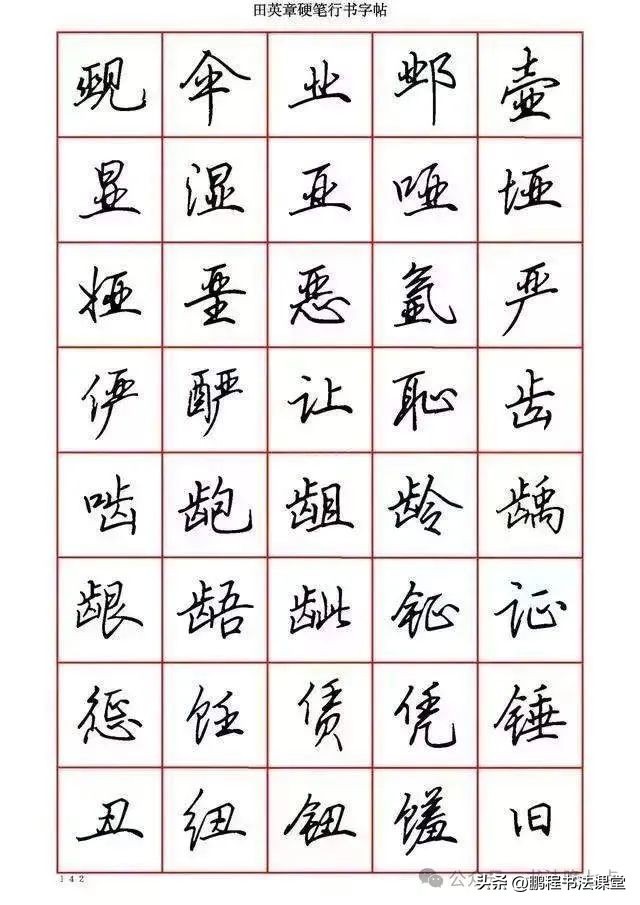 田英章硬笔行书字帖
觋伞业邺壶
显湿亚哑垭
娅垩恶氩严
俨酽让耻齿
啮龅龃龄龋
龈龉龇钲证
惩饪赁凭锤
丑纽钮馐旧
142
头条@鹏程书法课堂